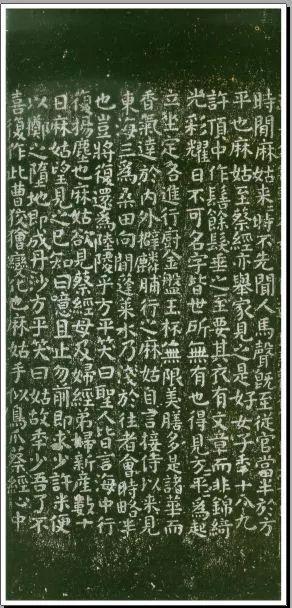 時聞麻姑來時不先聞人馬聲既至從官當半於方
平也麻姑至蔡經亦舉家見之是好女子年十八九
許頂中作髻餘髮垂之至要其衣有文章而非錦綺
光彩耀日不可名字皆世所無有也得見方平為起
立坐定各進行廚金盤玉杯無限美膳多是諸華而
香氣達於內外擗麟脯行之麻姑自言接待以來見
東海三為桑田向間蓬萊水乃淺於往者會時略半
也豈將復還為陸陵乎方平笑曰聖人皆言海中行
復揚塵也麻姑欲見蔡經母及婦經弟婦新產數十
日麻姑望見之已知曰噫且止勿前即求少許米便
以擲之墮地即成丹沙方平笑曰姑故年少吾了不
喜復作此曹狡獪變化也麻姑手似鳥爪蔡經心中